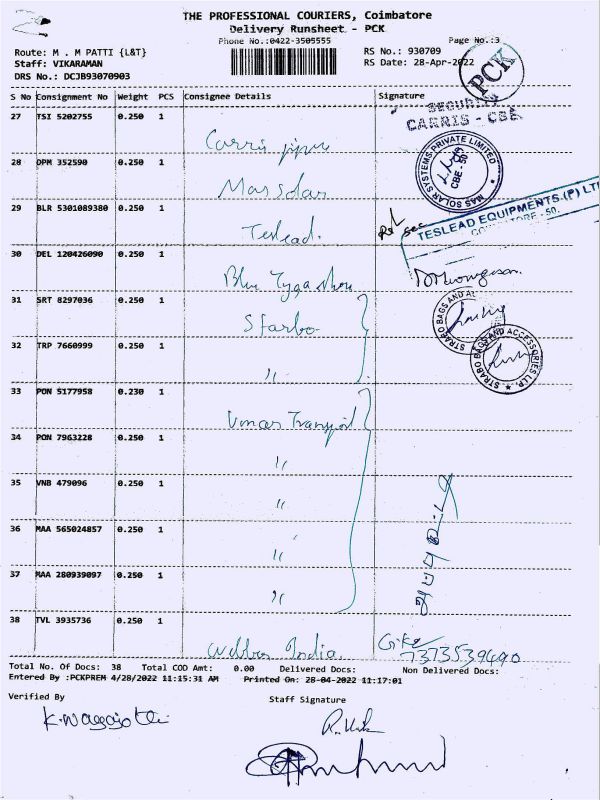 THE PROFESSIONAL COURIERS, Coimbatore
Delivery Runsheet - PCK
Phone No.:0422-3505555
Page No.:3
Route: M . M PATTI {L&T}
RS No.: 930709
Staff: VIKARAMAN
RS Date: 28-Apr-2022
DRS No.: DCJB93070903
PCK
S No Consignment No Weight PCS Consignee Details Signature
SECURITY
CARRIS - CBE
27 TSI 5202755 0.250 1
Carris
28 OPM 352590 0.250 1
Mas Solar
MAS SOLAR SYSTEMS PRIVATE LIMITED
CBE - 50
29 BLR 5301089380 0.250 1
Teslead.
TESLEAD EQUIPMENTS (P) LT
30 DEL 120426090 0.250 1
Blue
31 SRT 8297036 0.250 1
STRABO BAGS AND AC
32 TRP 7660999 0.250 1
"
STRABO BAGS AND ACCESSORIES LLP.
33 PON 5177958 0.230 1
Transport
34 PON 7963228 0.250 1
"
35 VNB 479096 0.250 1
"
36 MAA 565024857 0.250 1
"
37 MAA 280939097 0.250 1
"
38 TVL 3935736 0.250 1
India
7373539490
Total No. Of Docs: 38 Total COD Amt: 0.00 Delivered Docs: Non Delivered Docs:
Entered By :PCKPREM 4/28/2022 11:15:31 AM Printed On: 28-04-2022 11:17:01
Verified By
Staff Signature